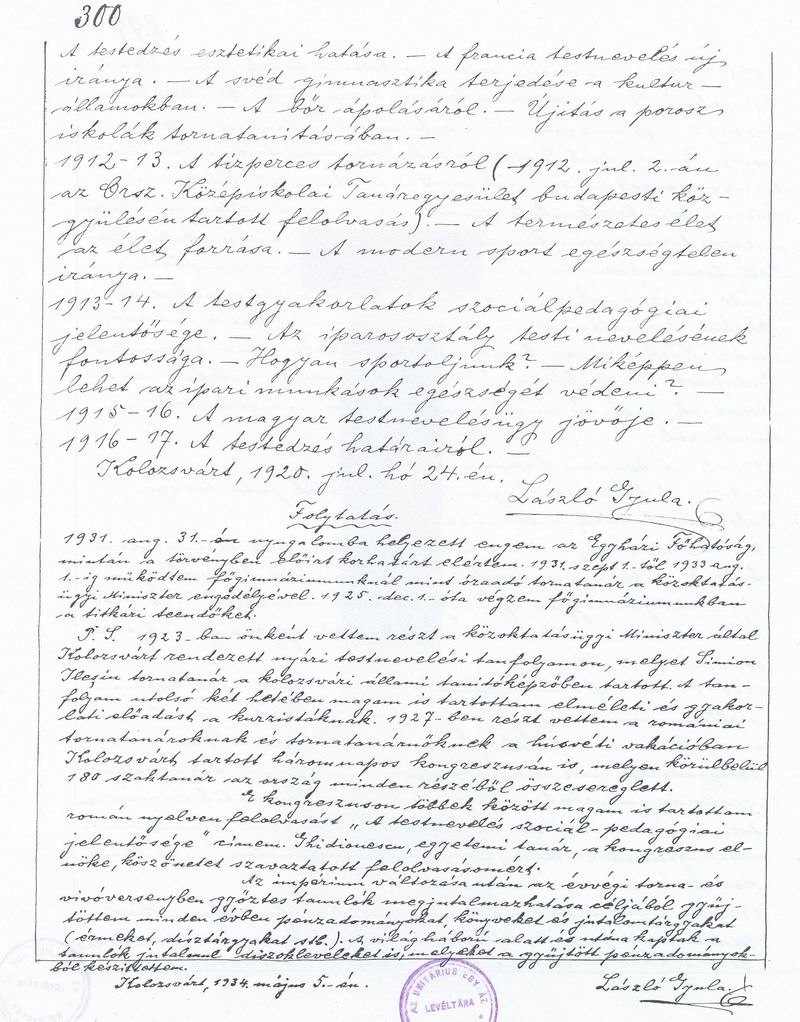 300
A testedzés esztetikai hatása. — A francia testnevelés új
iránya. — A svéd gimnasztika terjedése a kultur-
államokban. — A bőr ápolásáról. — Újitás a porosz
iskolák tornatanitásában. —
1912-13. A tizperces tornázásról (1912. jul. 2.-án
az Orsz. Középiskolai Tanáregyesület budapesti köz-
gyülésén tartott felolvasás). — A természetes élet
az élet forrása. — A modern sport egészségtelen
iránya. —
1913-14. A testgyakorlatok szociálpedagógiai
jelentősége. — Az iparososztály testi nevelésének
fontossága. — Hogyan sportoljunk? — Miképpen
lehet az ipari munkások egészségét védeni? —
1915-16. A magyar testnevelésügy jövője. —
1916-17. A testedzés határairól. —
Kolozsvárt, 1920. jul. hó 24.-én.
László Gyula.
Folytatás.
1931. aug. 31.-én nyugalomba helyezett engem az Egyházi Főhatóság,
miután a törvényben előirt korhatárt elértem. 1931. szept 1.-től 1933 aug.
1.-ig működtem főgimnáziumunknál mint óraadó tornatanár a közoktatás-
ügyi Miniszter engedélyével. 1925. dec. 1.-óta végzem főgimnáziumunkban
a titkári teendőket.
P. S. 1923-ban önként vettem részt a közoktatásügyi Miniszter által
Kolozsvárt rendezett nyári testnevelési tanfolyamon, melyet Simion
tornatanár a kolozsvári állami tanitóképzőben tartott. A tan-
folyam utolsó két hetében magam is tartottam elméleti és gyakor-
lati előadást a kurzistáknak. 1927-ben részt vettem a romániai
tornatanároknak és tornatanárnőknek a húsvéti vakációban
Kolozsvárt tartott háromnapos kongreszusán is, melyen körülbelül
180 szaktanár az ország minden részéből összesereglett.
E kongreszuson többek között magam is tartottam
román nyelven felolvasást „A testnevelés szociál-pedagógiai
jelentősége" cimem. Ghidionescu, egyetemi tanár, a kongreszus el-
nöke, köszönetet szavaztatott felolvasásomért.
Az impérium változása után az évvégi torna- és
vivóversenyben győztes tanulók megjutalmazhatása céljából gyüj-
töttem minden évben pénzadományokat, könyveket és jutalomtárgyakat
(érmeket, disztárgyakat stb.). A világháború alatt és utána kaptak a
tanulók jutalmul diszokleveleket is, melyeket a gyüjtött pénzadományok-
ból készittettem.
Kolozsvárt, 1934. május 5.-én.
László Gyula.
AZ UNITÁRIUS EGYHÁZ
LEVÉLTÁRA